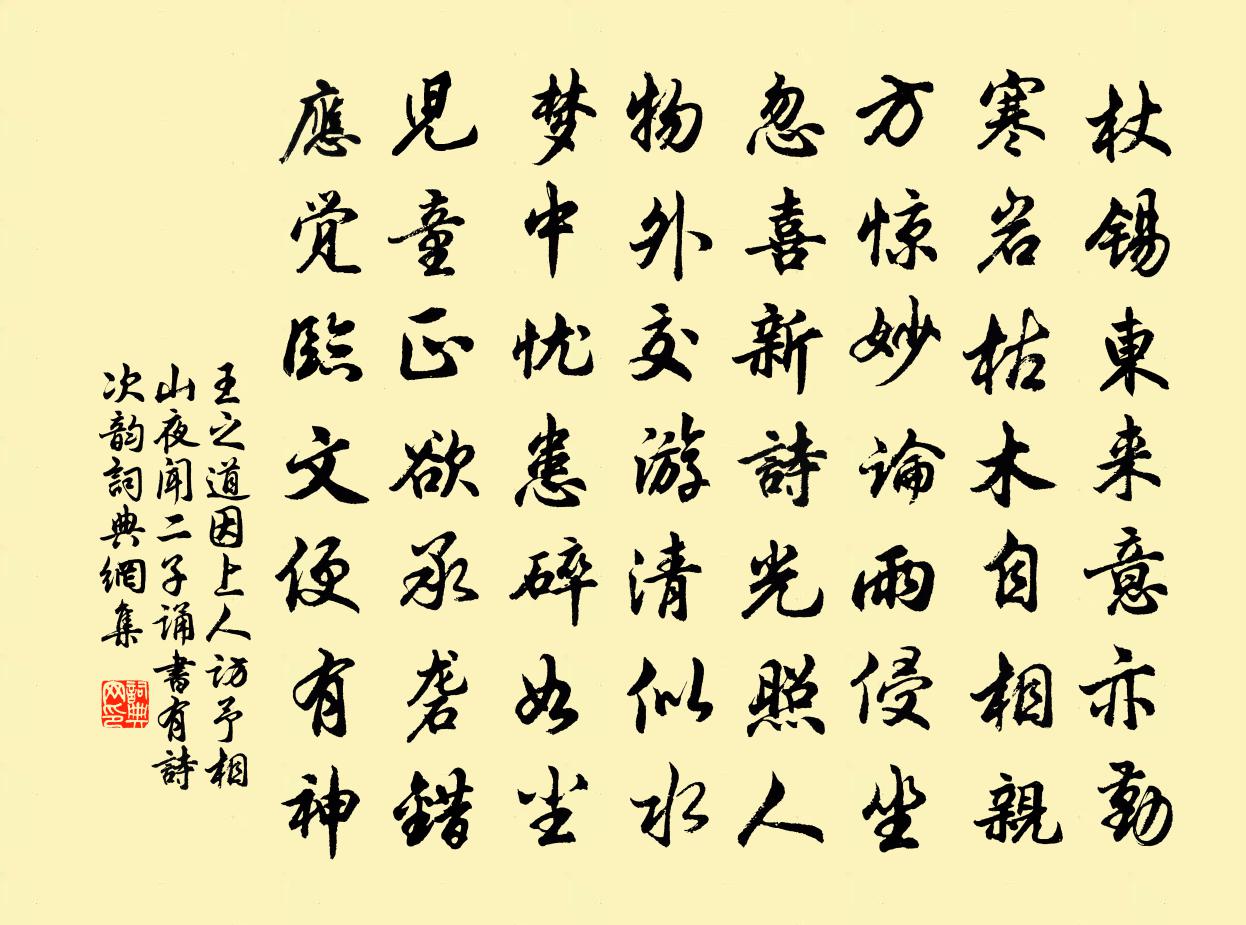 杖锡東来意亦勤
寒岩枯木自相親
方惊妙论雨侵坐
忽喜新詩光照人
物外交游清似水
梦中忧患碎如尘
児童正欲承砻錯
應觉臨文便有神
王之道因上人访予相
山夜闻二子诵書有詩
次韵詞典網集
詞典网印